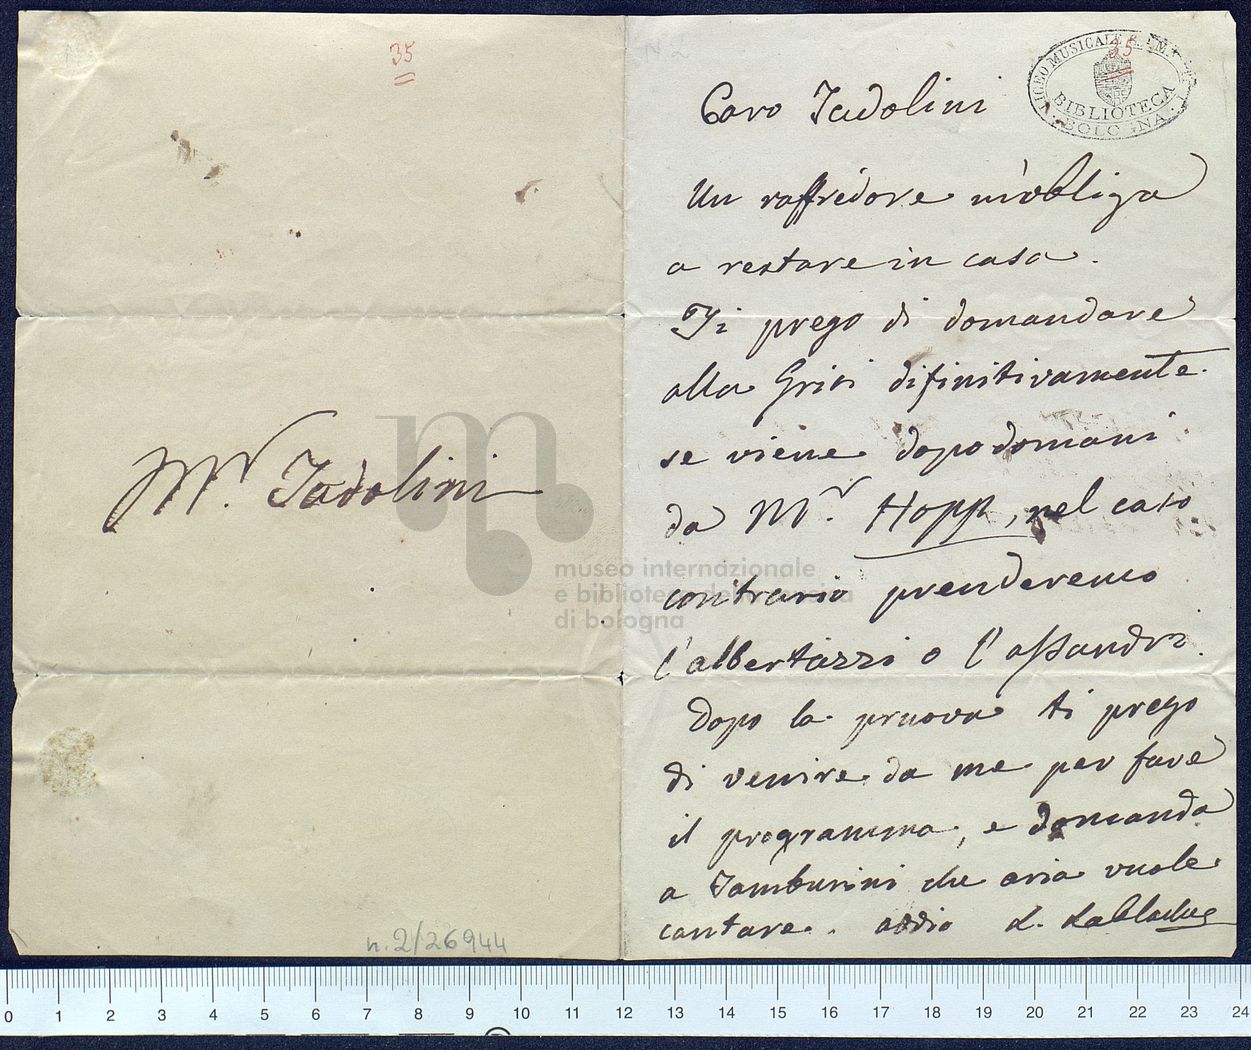 35
Mr. Tadolini
n. 2/26944
N 2
LICEO MUSICALE
BIBLIOTECA
BOLOGNA
35
Caro Tadolini
Un raffredore m'obliga
a restare in casa.
Ti prego di domandare
alla Grisi difinitivamente
se viene dopodomani
da Mr. Hopp, nel caso
contrario prenderemo
l'albertazzi o l'assandri.
Dopo la pruova ti prego
di venire da me per fare
il programma, e domanda
a Tamburini che aria vuole
cantare. addio L. Lablache
museo internazionale
e biblioteca della musica
di bologna
0 1 2 3 4 5 6 7 8 9 10 11 12 13 14 15 16 17 18 19 20 21 22 23 24